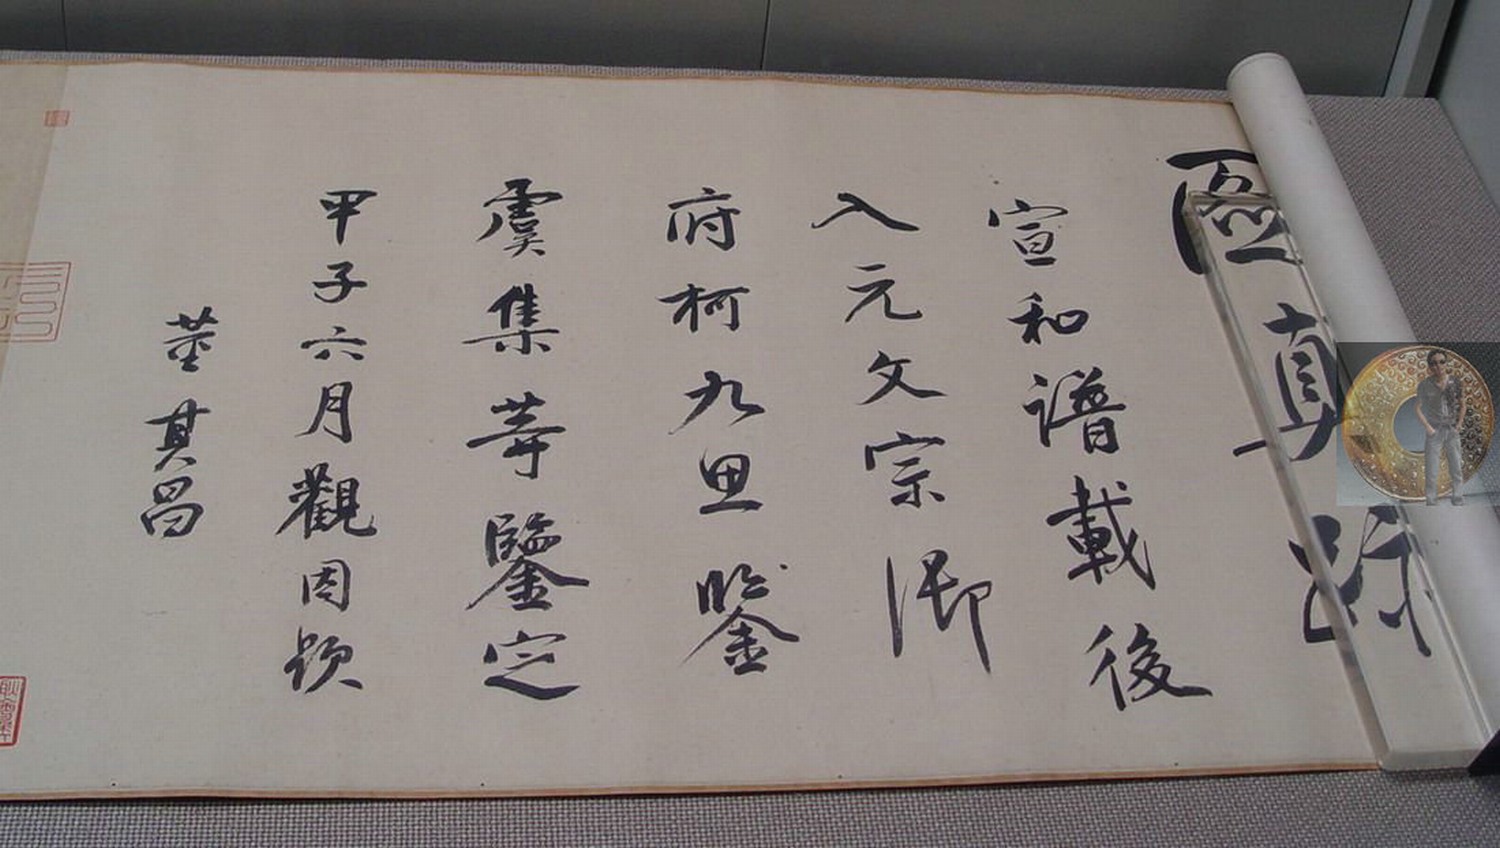 真跡
宣和譜載後
入元文宗御
府柯九思鑒
虞集等鑒定
甲子六月觀因題
董其昌